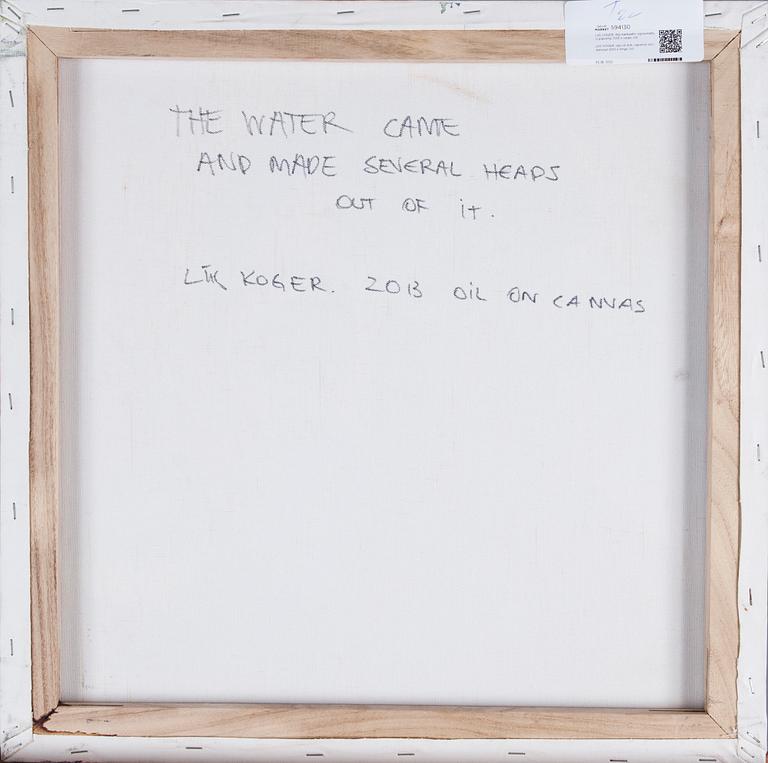 THE WATER CAME
AND MADE SEVERAL HEADS
OUT OF iT.
KOGER. 2013 OiL ON CANVAS
594130